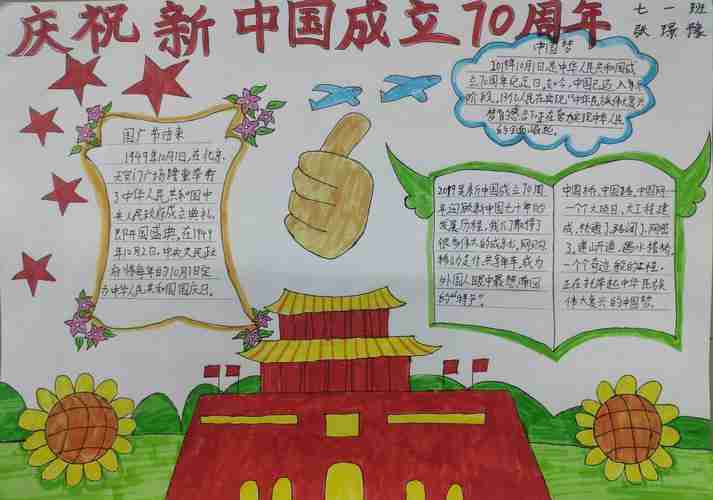 庆祝新中国成立70周年
七一班
张璟豫
国广节由来
1949年10月1日,在北京
天安门广场隆重举行
了中华人民共和国中
央人民政府成立典礼,
即开国盛典。在1949
年10月2日,中央人民政
府将每年的10月1日定
为中华人民共和国国庆日。
中国梦
2019年10月1日是中华人民共和国成
立70周年纪念日。如今,中国已迈入
阶段,13亿人民在实现"中华民族伟大复兴
2019是新中国成立70周
年回顾新中国七十年的
发展历程,我们取得了
很多伟大的成就,网购
移动支付共享单车,成为
外国人眼中最想带回
的"特产"。
中国桥,中国路,中国网一
一个个大项目,大工程建
成,
了,逢山开道,遇水搭桥,
一个个奇迹般的工程,
正在托举起中华民族
伟大复兴的中国梦。